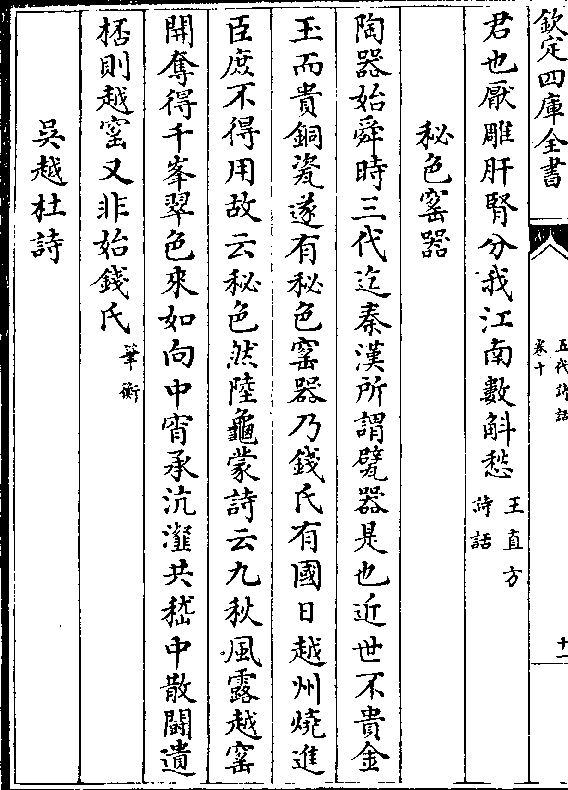 欽定四庫全書
五代詩話
卷十
十一
君也厭雕肝腎分我江南數斛愁
王直方
詩話
秘色窰器
陶器始舜時三代迄秦漢所謂甓器是也近世不貴金
玉而貴銅瓷遂有秘色窰器乃錢氏有國日越州燒進
臣庶不得用故云秘色然陸龜蒙詩云九秋風露越窰
開奪得千峯翠色來如向中宵承沆瀣共嵇中散鬬遺
桮則越窰又非始錢氏
筆衡
吳越杜詩